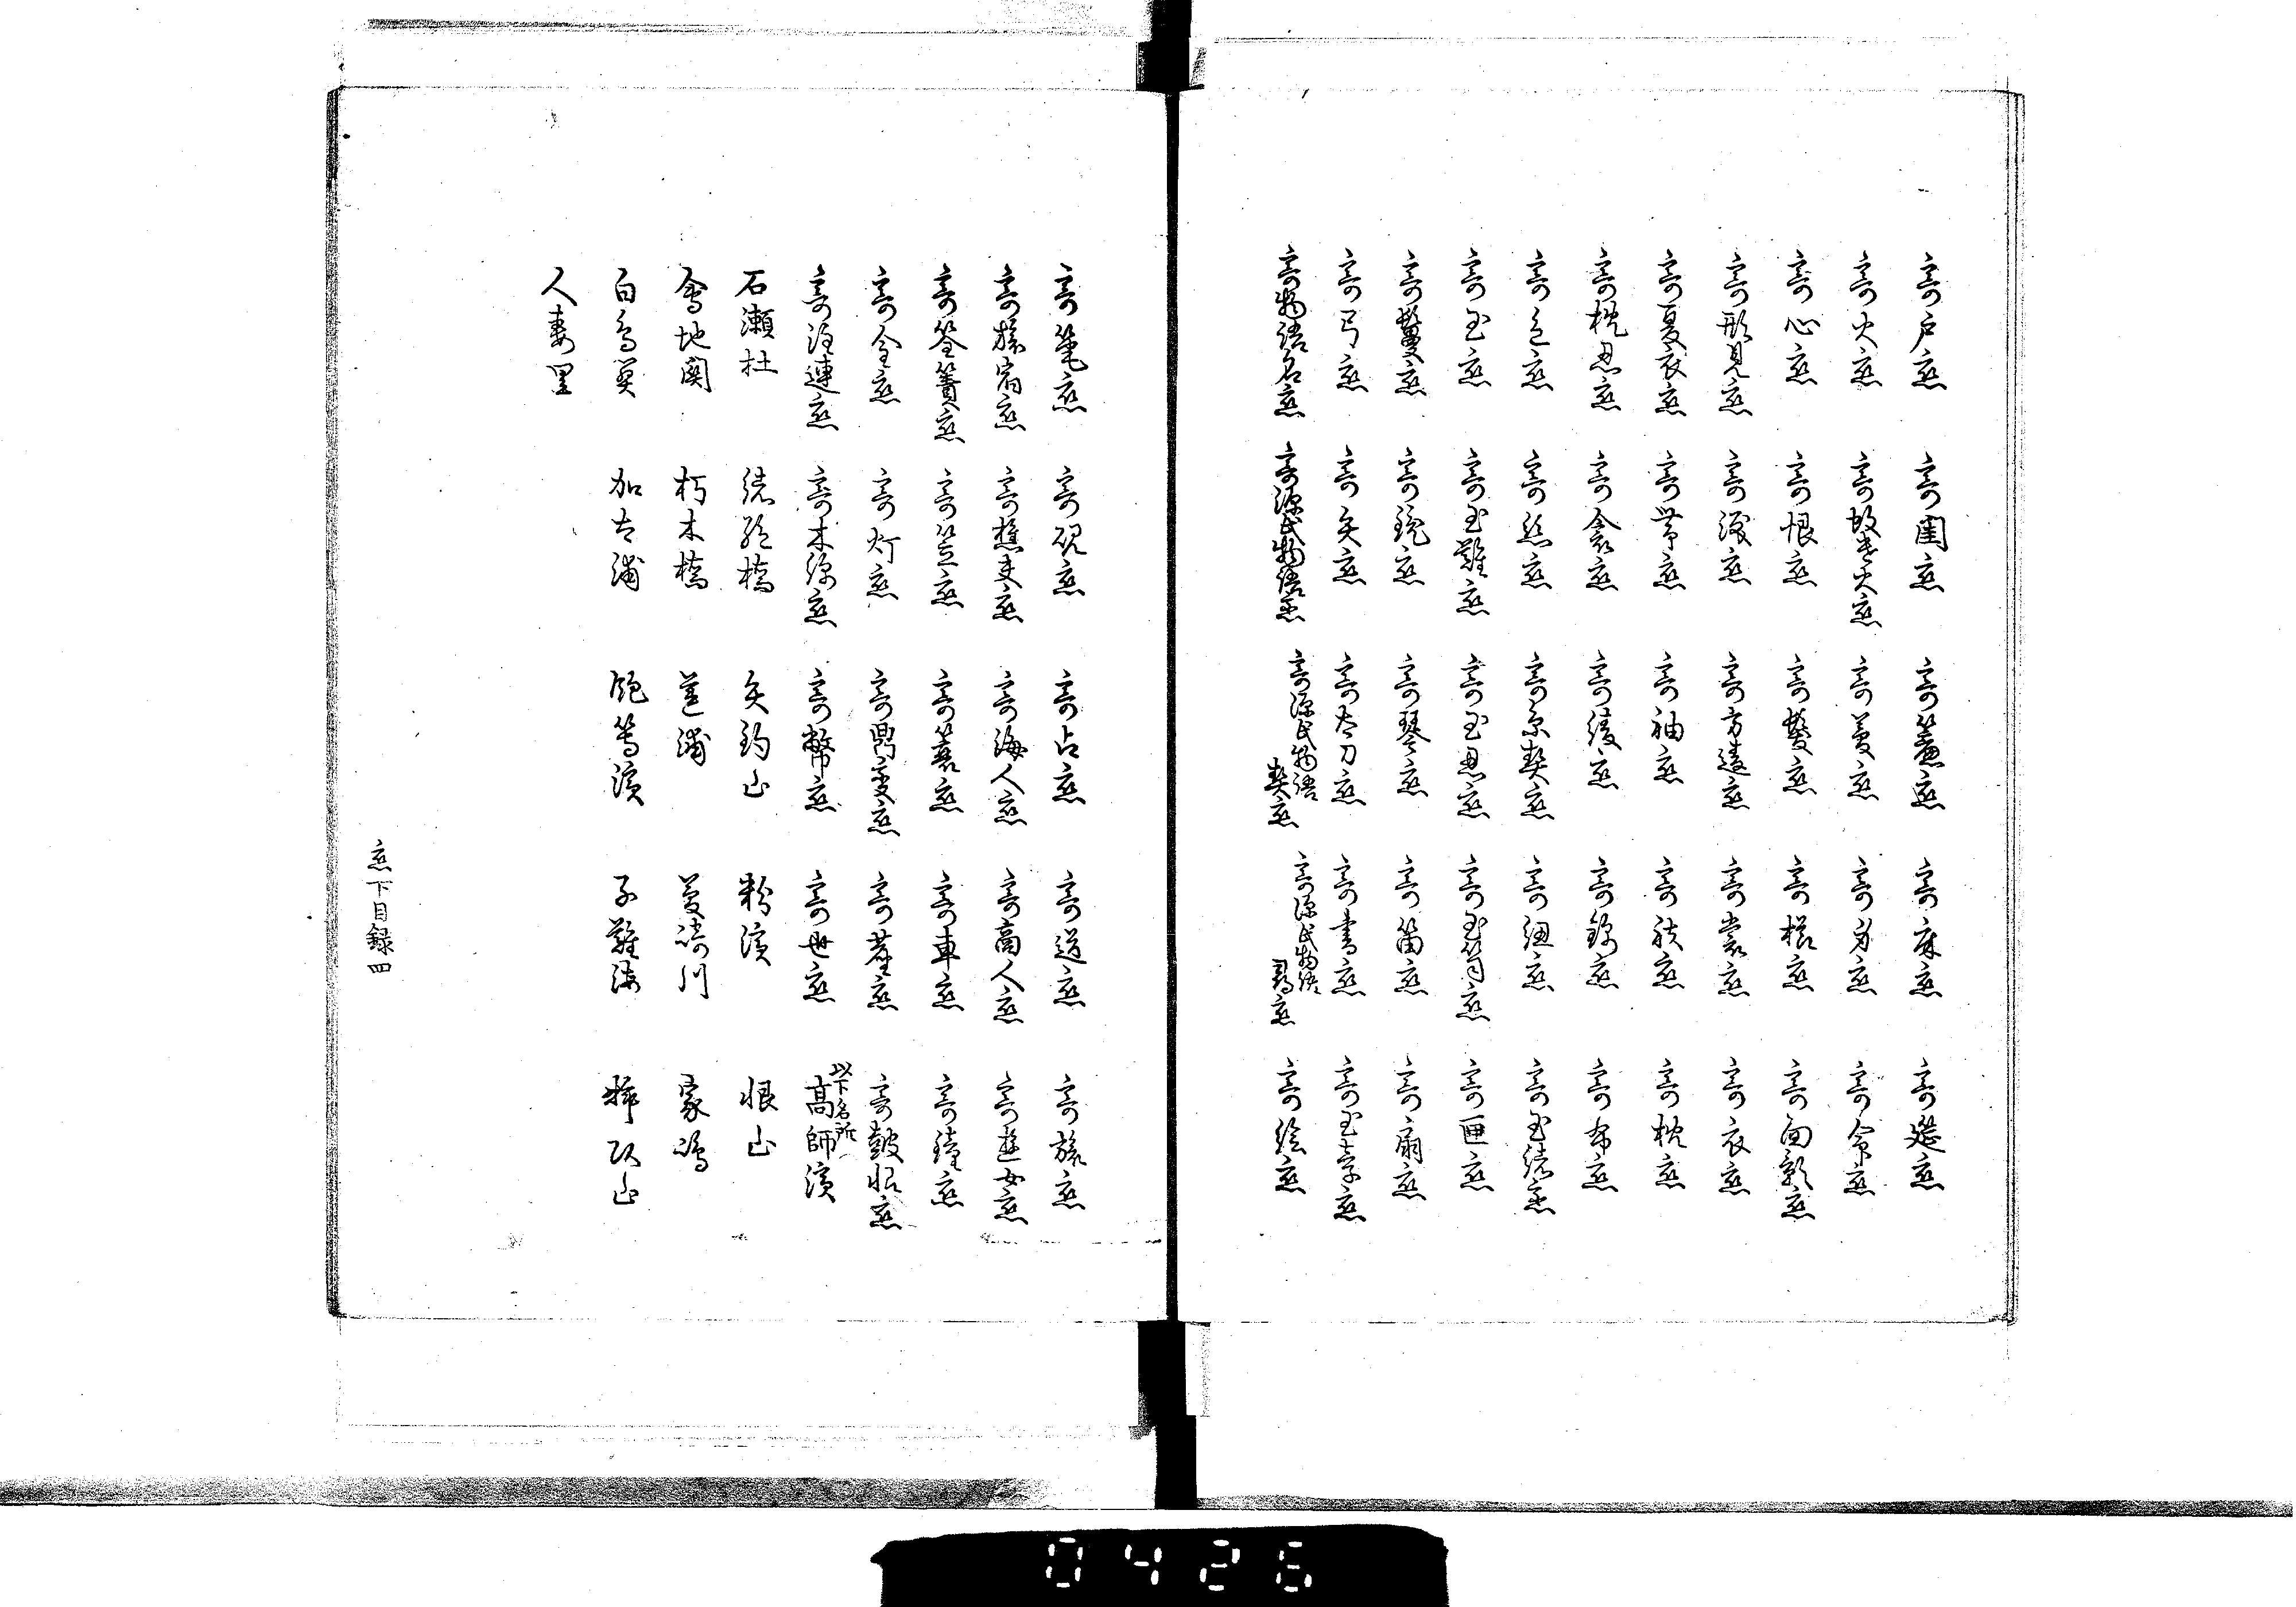 寄戸恋 寄閨恋 寄簾恋 寄床恋 寄筵恋
寄火恋 寄蚊遣火恋 寄夢恋 寄身恋 寄命恋
寄心恋 寄恨恋 寄鬘恋 寄櫛恋 寄面影恋
寄形見恋 寄涙恋 寄方違恋 寄裳恋 寄衣恋
寄夏衣恋 寄帯恋 寄袖恋 寄袂恋 寄枕恋
寄枕忍恋 寄衾恋 寄綾恋 寄錦恋 寄布恋
寄色恋 寄糸恋 寄糸契恋 寄紐恋 寄玉緒恋
寄玉恋 寄玉難恋 寄玉忍恋 寄玉箒恋 寄匣恋
寄鬘恋 寄鏡恋 寄琴恋 寄笛恋 寄扇恋
寄弓恋 寄矢恋 寄太刀恋 寄書恋 寄玉章恋
寄物語名恋 寄源氏物語恋 寄源氏物語契恋 寄源氏物語尋恋 寄絵恋
寄筆恋 寄硯恋 寄占恋 寄道恋 寄旅恋
寄旅宿恋 寄樵夫恋 寄海人恋 寄商人恋 寄遊女恋
寄笠恋 寄蓑恋 寄車恋 寄鐘恋
寄金恋 寄灯恋 寄鼎変恋 寄碁恋 寄鼓恨恋
寄注連恋 寄木綿恋 寄幣恋 寄世恋 以下名所 高師浜
石瀬杜 緒絶橋 矢釣山 粉浜 恨山
会地関 朽木橋 夢崎川
白鳥関 加太浦 飽等浜 子難海
人妻里
恋下目録 四
0426